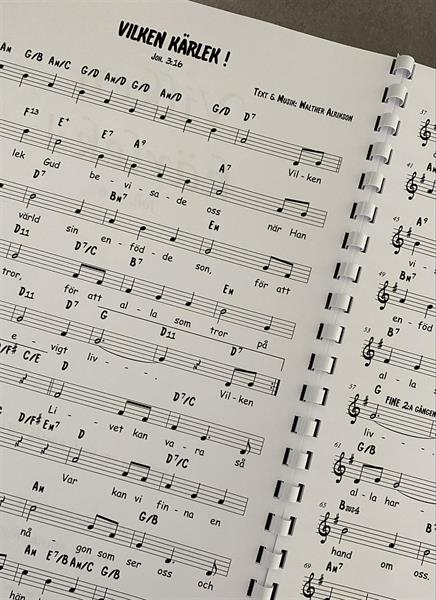 VILKEN KÄRLEK !
JOH. 3:16
TEXT & MUSIK: WALTHER ALRIKSON
AM G/B AM/C G/D AM/D G/D AM/D G/D D7
Vil - ken
F13 E+ E7 A9 A7
lek Gud be - vi - sa - de oss när Han
D7 BM7 EM
värld sin en - föd - de son, för att
D11 D7/C B7 EM
tror, för att al - la som tror på
D11 D7 G D11 D7
e - vigt liv - - - Vil - ken
D/F# C/E D D7/C
Li - vet kan va - ra så
D/F# EM7 D D7/C
Var kan vi fin - na en
AM G/B
nå - gon som ser oss och
AM E7/B AM/C G/B
37
41
AM
45
A9
vi -
49
BM7
en - föd
53
al - la
57
G FINE 2:A GÅNGEN
liv - - -
61
G/B
al - la har
65
Bsus4
hand om oss.
69
AM7